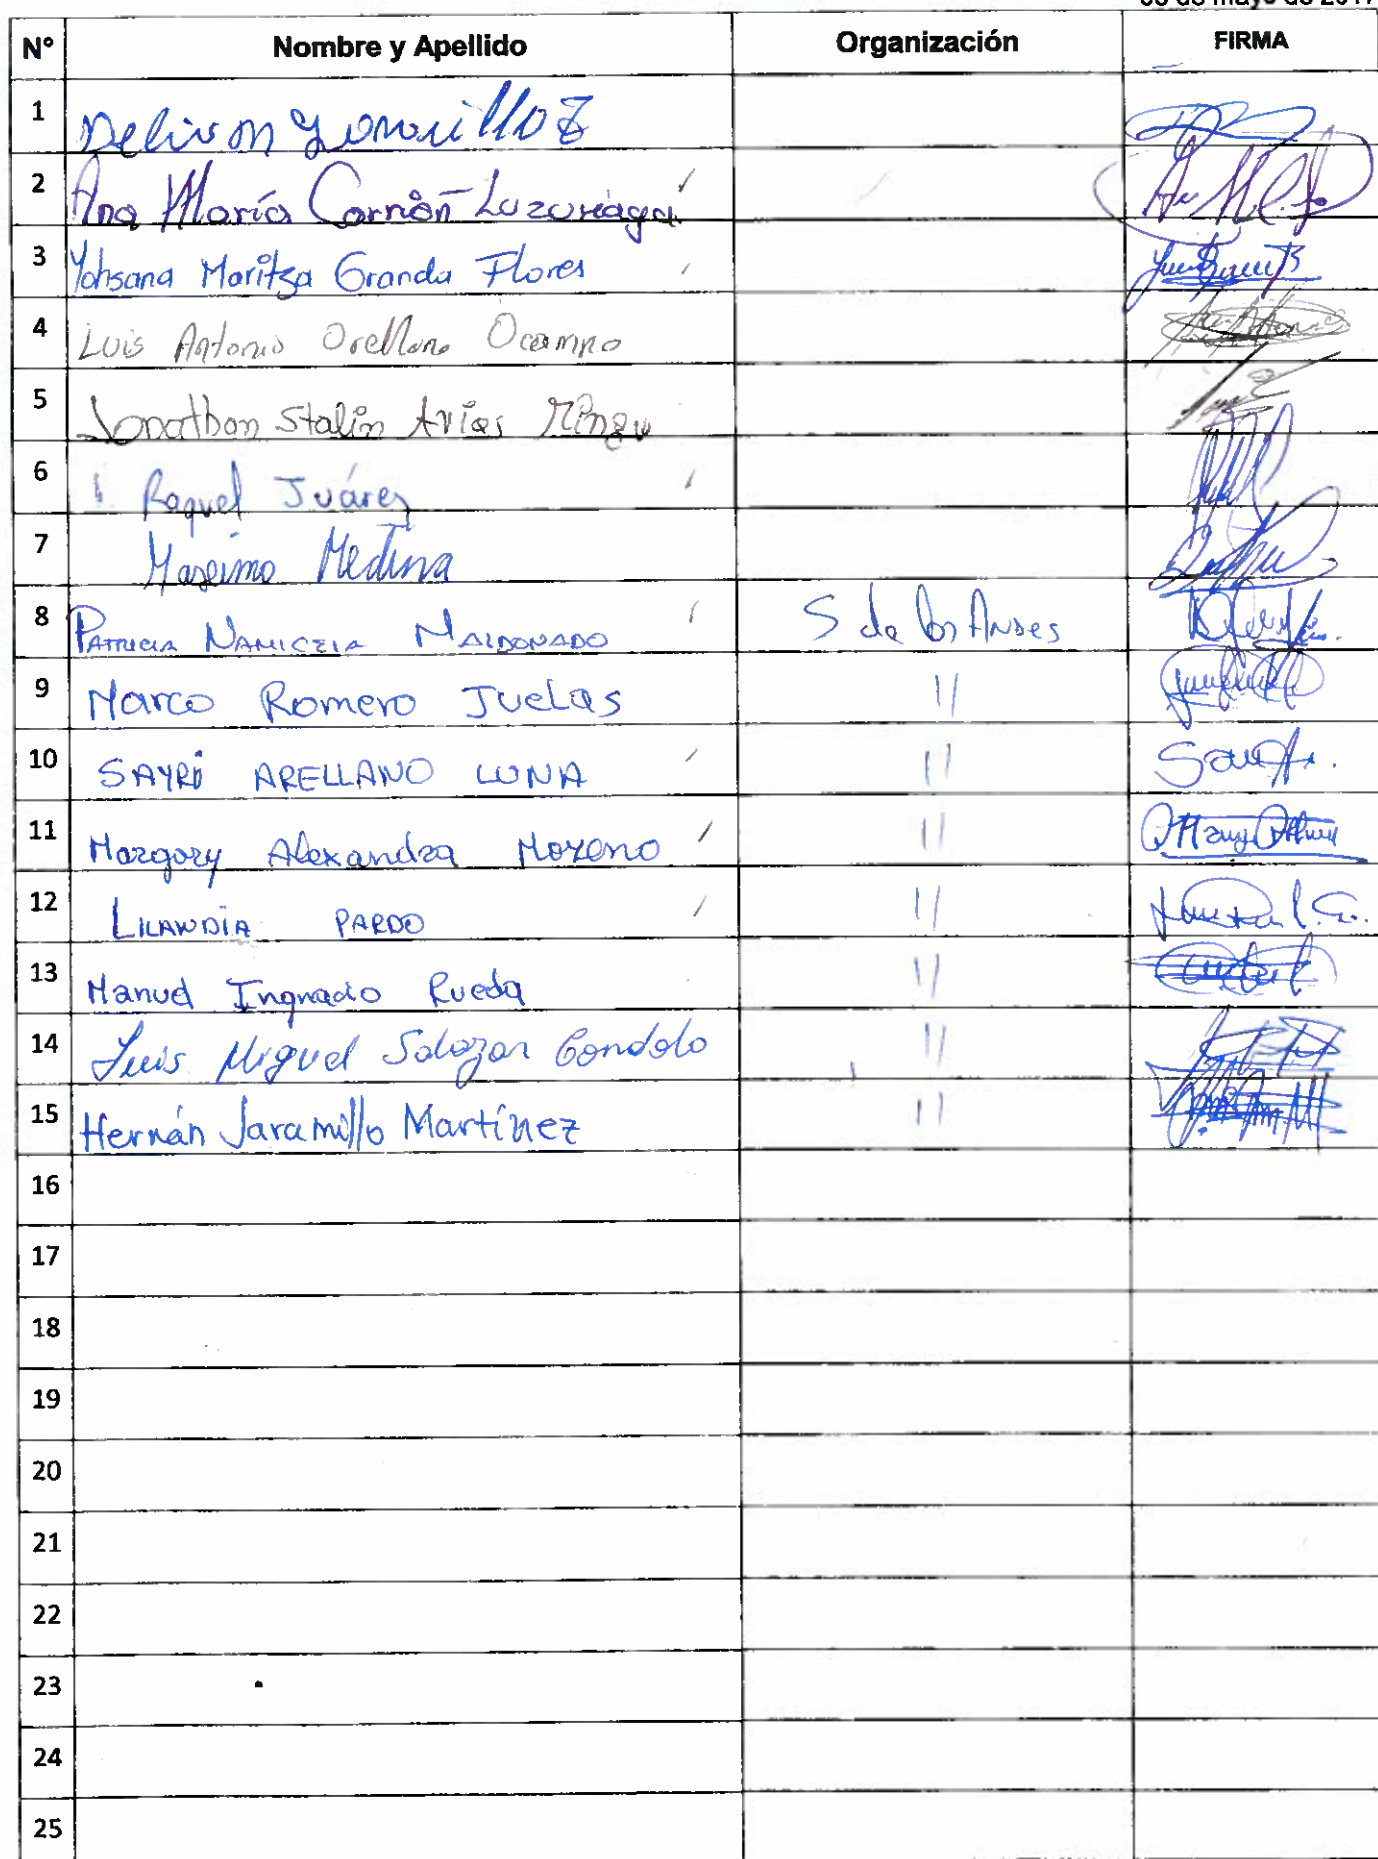 de mayo de 2017
N° Nombre y Apellido Organización FIRMA
1
2 Ana María Carrión Luzuriaga
3 Yohsana Maritza Granda Flores
4 Luis Antonio Orellana Ocampo
5 Jonathan Stalin Arias
6 Raquel Juárez
7 Maximo Medina
8 PATRICIA NAMICELA MALDONADO S de los ANDES
9 Marco Romero Juelas 11
10 SAYRI ARELLANO LUNA 11
11 Margory Alexandra Moreno 11
12 LILANDIA PARDO 11
13 Manuel Ingnacio Rueda 11
14 Luis Miguel Salazar Condolo 11
15 Hernán Jaramillo Martínez 11
16
17
18
19
20
21
22
23
24
25